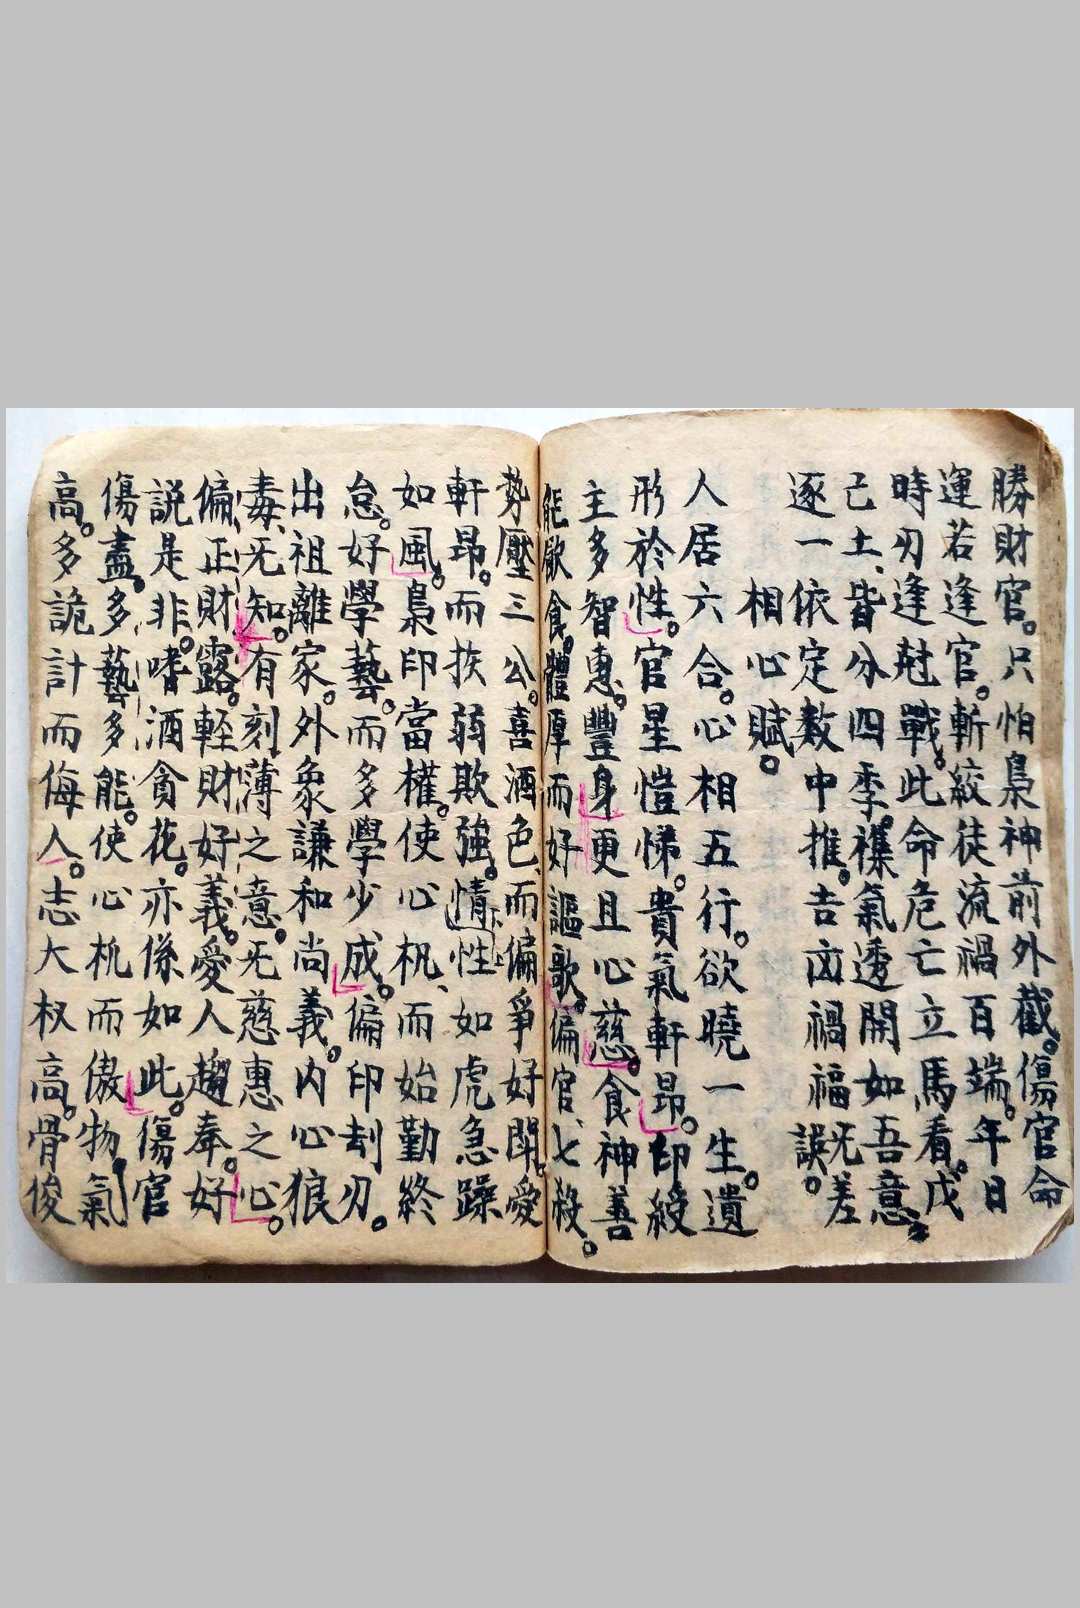 勝財官。只怕梟神前外截。傷官命
運若逢官。斬絞徒流禍百端。年日
時刃逢尅戰。此命危亡立馬看。戊
己土、皆分四季。襍氣透開如吾意。
逐一依定數中推。吉凶禍福旡差
誤。
相心賦。
人居六合。心相五行。欲曉一生。遺
形於性。官星愷悌。貴氣軒昂。印綬
主多智惠。豐身更且心慈。食神善
能飲食。體厚而好謳歌。偏官、七殺。
勢壓三公。喜酒色、而偏爭好鬪。愛
軒昂。而扶弱欺強。情性如虎急躁
如風。梟印當權。使心机、而始勤終
怠。好學藝。而多學少成。偏印刦刃。
出祖離家。外象謙和尚義。内心狼
毒、旡知。有刻薄之意。旡慈惠之心。
偏正財露。輕財好義。愛人趨奉。好
説是非。嗜酒貪花。亦係如此。傷官
傷盡。多藝多能。使心机而傲物。氣
高。多詭計而侮人。志大权高。骨俊